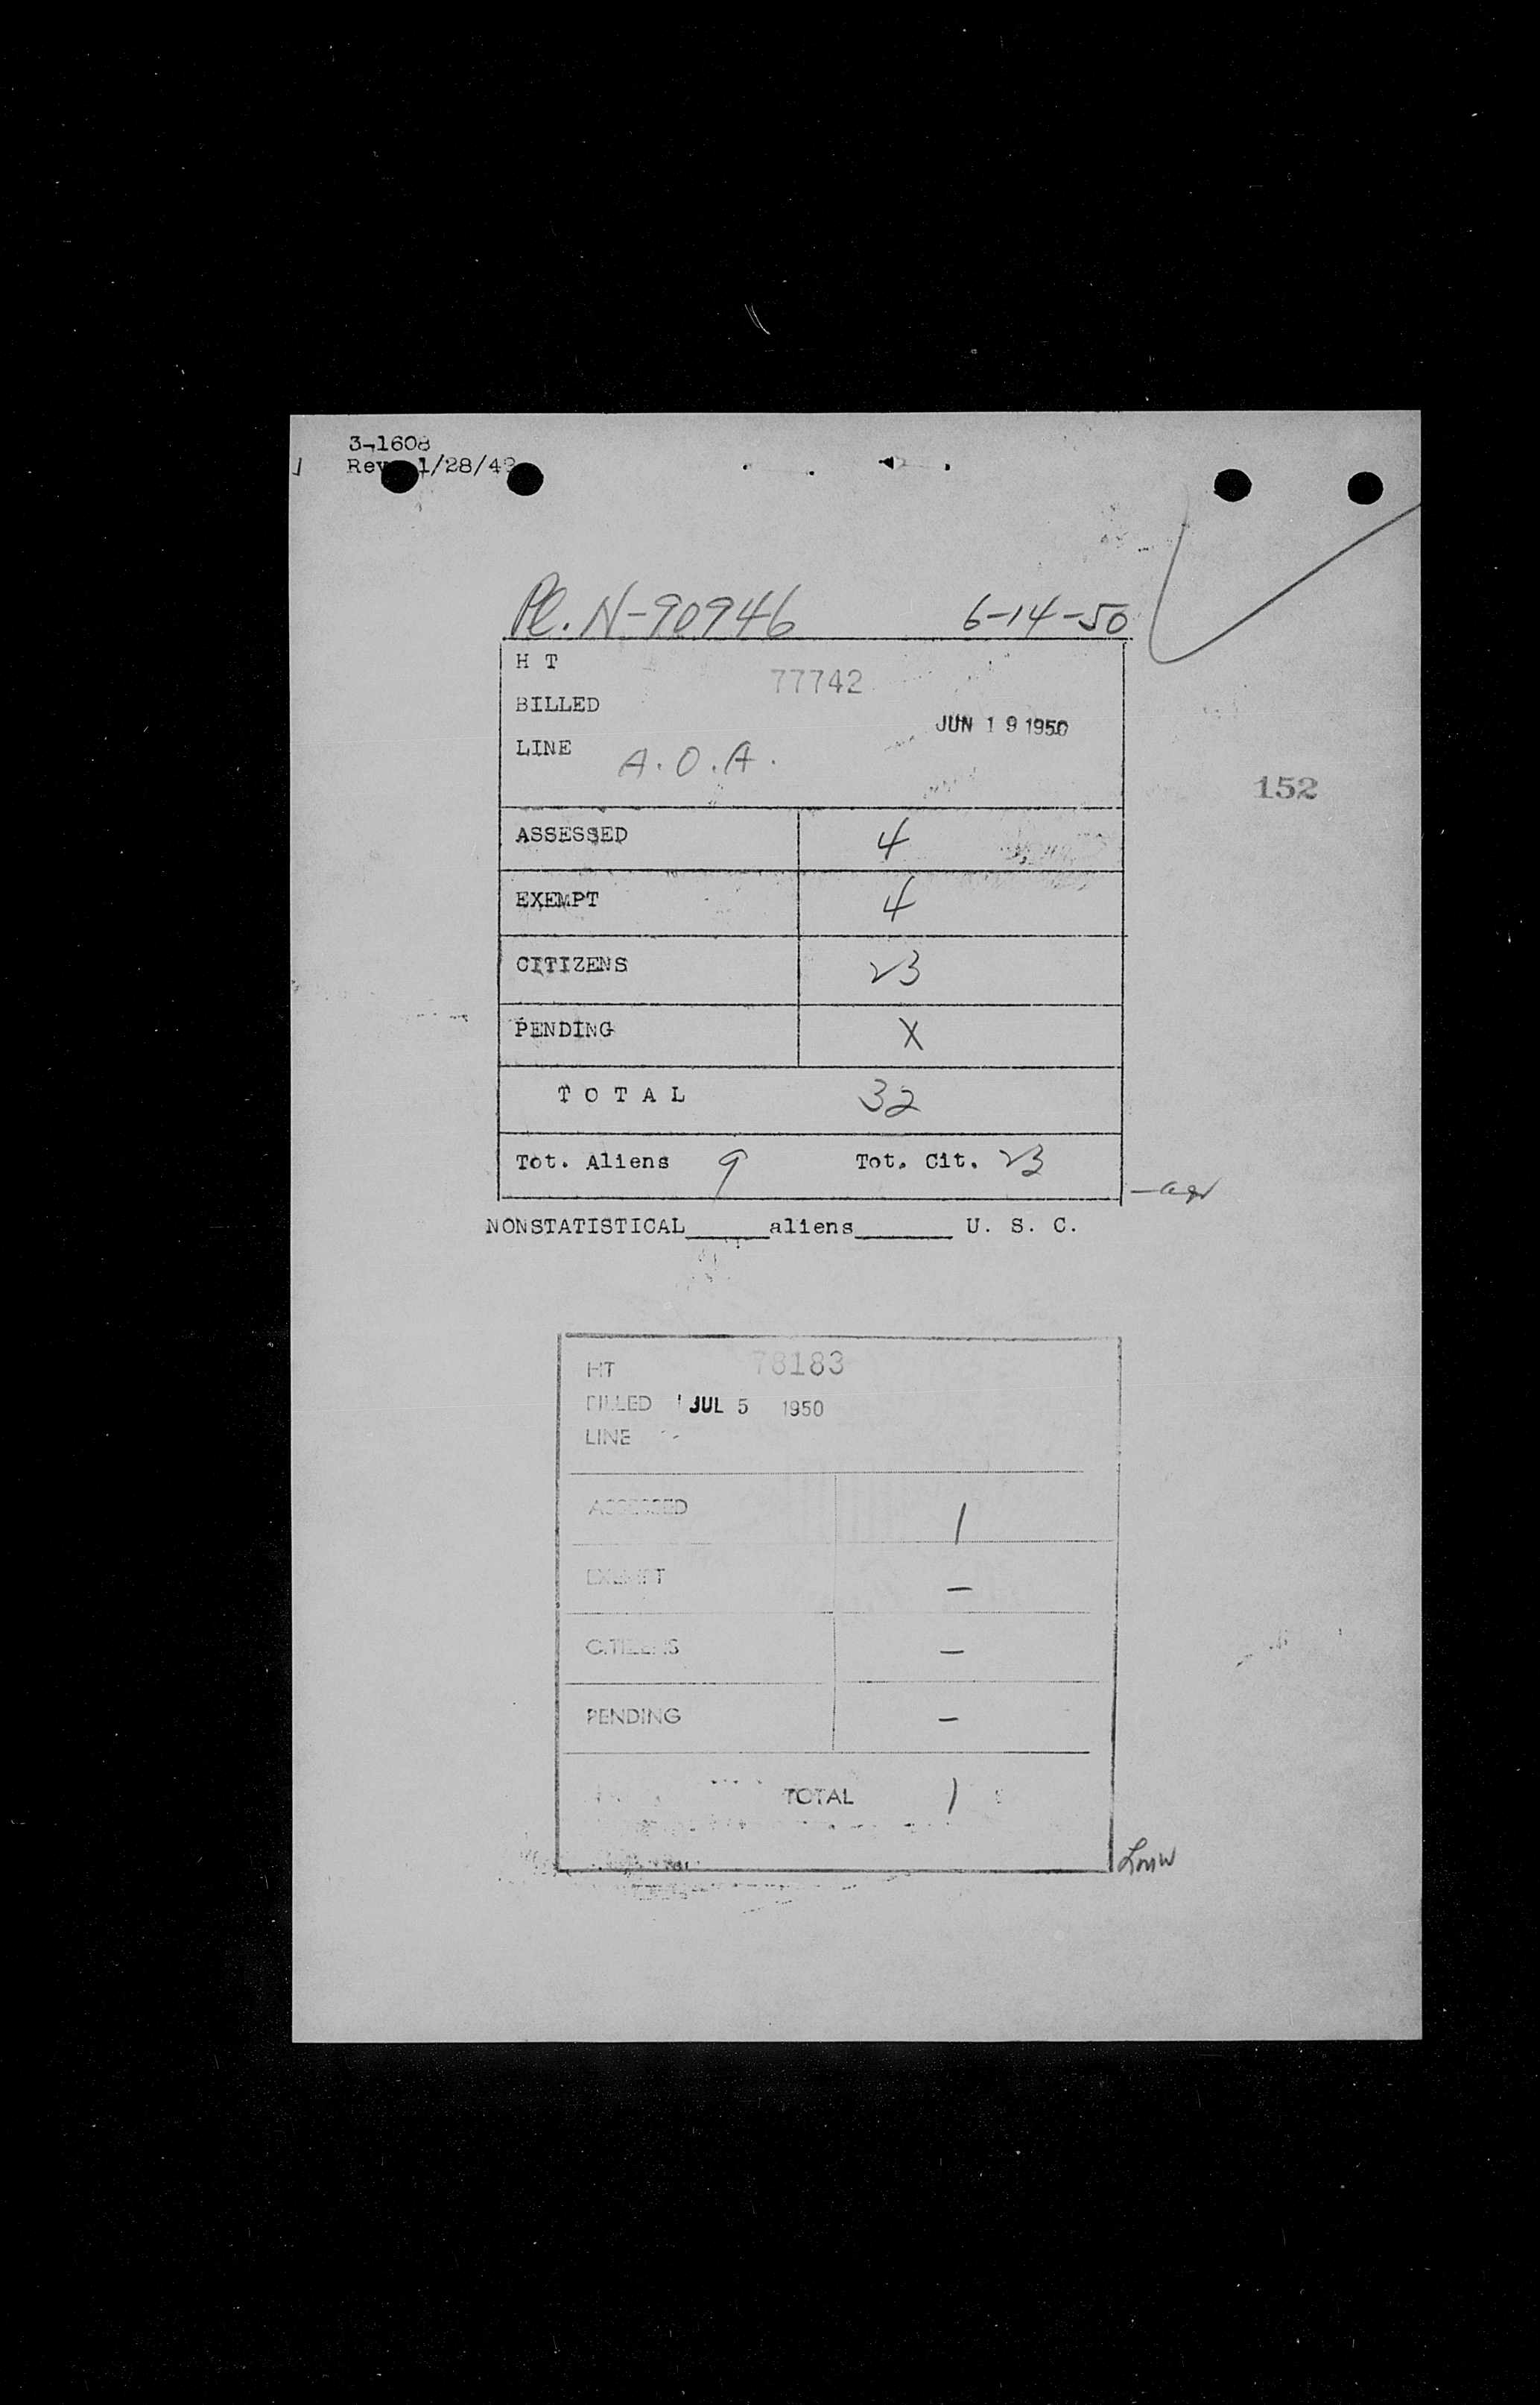 3-1608
Rev. 1/28/49
Pl. N-90946 6-14-50
H T 77742
BILLED
JUN 19 1950
LINE A.O.A.
152
ASSESSED 4
EXEMPT 4
CITIZENS 23
PENDING X
T O T A L 32
Tot. Aliens 9 Tot. Cit. 23
NONSTATISTICAL_____aliens______ U. S. C.
HT 78183
BILLED JUL 5 1950
LINE
ASSESSED 1
EXEMPT –
CITIZENS –
PENDING –
TOTAL 1
Lmw